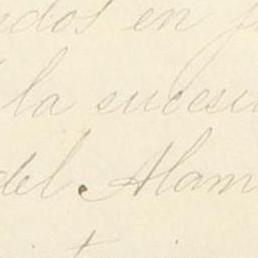 ados en
la sucesi
del Alam